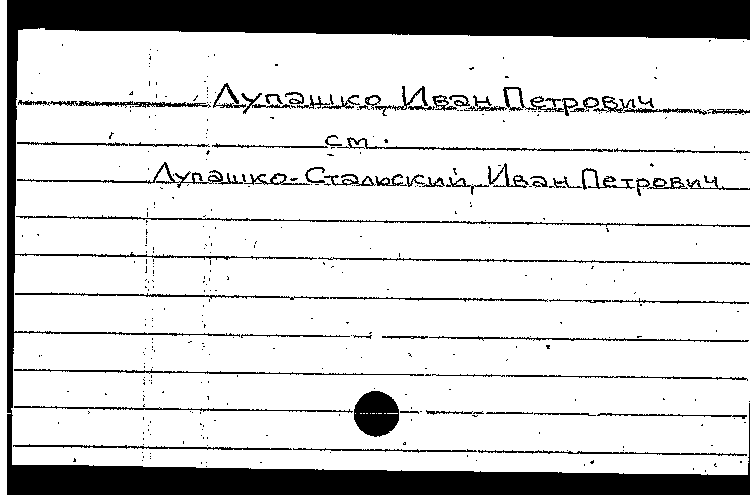 Лупашко, Иван Петрович
см.
Лупашко-Стальский, Иван Петрович